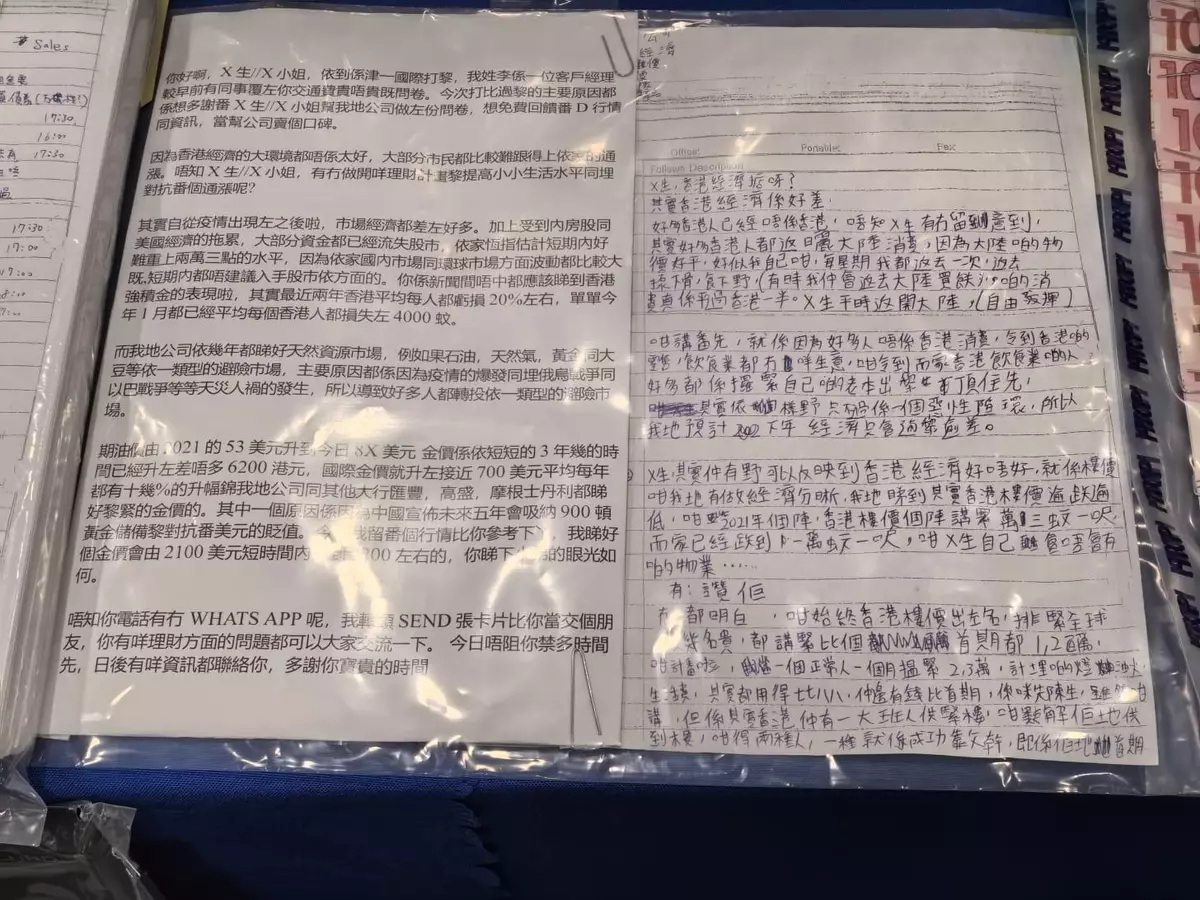 # Sales
17:30
16:00
17:30
17:30
17:00
你好啊，X 生//X 小姐，依到係津一國際打黎，我姓李係一位客戶經理
較早前有同事覆左你交通費貴唔貴既問卷。今次打比過黎的主要原因都
係想多謝番 X 生//X 小姐幫我地公司做左份問卷，想免費回饋番 D 行情
同資訊，當幫公司賣個口碑。
因為香港經濟的大環境都唔係太好，大部分市民都比較難跟得上依家的通
漲。唔知 X 生//X 小姐，有冇做開咩理財計畫黎提高小小生活水平同埋
對抗番個通漲呢?
其實自從疫情出現左之後啦，市場經濟都差左好多。加上受到內房股同
美國經濟的拖累，大部分資金都已經流失股市，依家恆指估計短期內好
難重上兩萬三點的水平，因為依家國內市場同環球市場方面波動都比較大
既,短期內都唔建議入手股市依方面的。你係新聞間唔中都應該睇到香港
強積金的表現啦，其實最近兩年香港平均每人都虧損 20%左右，單單今
年 1 月都已經平均每個香港人都損失左 4000 蚊。
而我地公司依幾年都睇好天然資源市場，例如果石油，天然氣，黃金同大
豆等依一類型的避險市場，主要原因都係因為疫情的爆發同埋俄烏戰爭同
以巴戰爭等等天災人禍的發生，所以導致好多人都轉投依一類型的避險市
場。
期油價由 2021 的 53 美元升到今日 8X 美元 金價係依短短的 3 年幾的時
間已經升左差唔多 6200 港元，國際金價就升左接近 700 美元平均每年
都有十幾%的升幅錦我地公司同其他大行匯豐，高盛，摩根士丹利都睇
好黎緊的金價的。其中一個原因係因為中國宣佈未來五年會吸納 900 頓
黃金儲備黎對抗番美元的貶值。今 我留番個行情比你參考下 我睇好
個金價會由 2100 美元短時間內 200 左右的，你睇下 的眼光如
何。
唔知你電話有冇 WHATS APP 呢，我轉頭 SEND 張卡片比你當交個朋
友，你有咩理財方面的問題都可以大家交流一下。 今日唔阻你禁多時間
先，日後有咩資訊都聯絡你，多謝你寶貴的時間
經濟
Office: Portable: Fax:
Follown Description
X生,香港經濟掂呀？
其實香港經濟係好差.
好多香港人已經唔係香港, 唔知X生有冇留意到,
其實好多香港人都返曬大陸消費, 因為大陸啲物
價好平, 好似我自己咁, 每星期我都返去一次, 返去
按下骨, 食下野, (有時我仲會返去大陸買餸), 啲消
費真係平過香港一半。X生平時返開大陸 (自由發揮)
咁講番先, 就係因為好多人唔係香港消費, 令到香港啲
飲食業都冇咩生意, 咁令到而家香港飲食業啲人
好多都係攞緊自己啲老本出黎 頂住先,
其實依 樣野只會係一個惡性循環, 所以
我地預計 下年 經濟只會越黎愈差。
X生其實仲有野可以反映到香港經濟好唔好, 就係樓價
咁我地有做經濟分析, 我地睇到其實香港樓價逾跌逾
低, 咁 2021年個陣, 香港樓價個陣講緊萬三蚊一呎,
而家已經跌到一萬蚊一呎, 咁X生自己 會唔會有
啲物業……
有: 讚佢
冇 都明白, 咁始終香港樓價出左名, 排緊全球
名貴, 都講緊比個 首期都 1,2百萬,
咁計番啦, 一個正常人一個月搵緊 2,3萬, 計埋啲燈油火
生活費, 其實都用得七八八, 仲邊有錢比首期, 係咪先陳生, 雖然咁
講, 但係其實香港仲有一大班人供緊樓, 咁點解佢地供
到樓, 咁得兩種人, 一種就係成功靠父幹, 即係佢地 首期
HKPF
HKPF
HKPF
HKPF
HKPF
HKPF
10
10
10
10
10
10